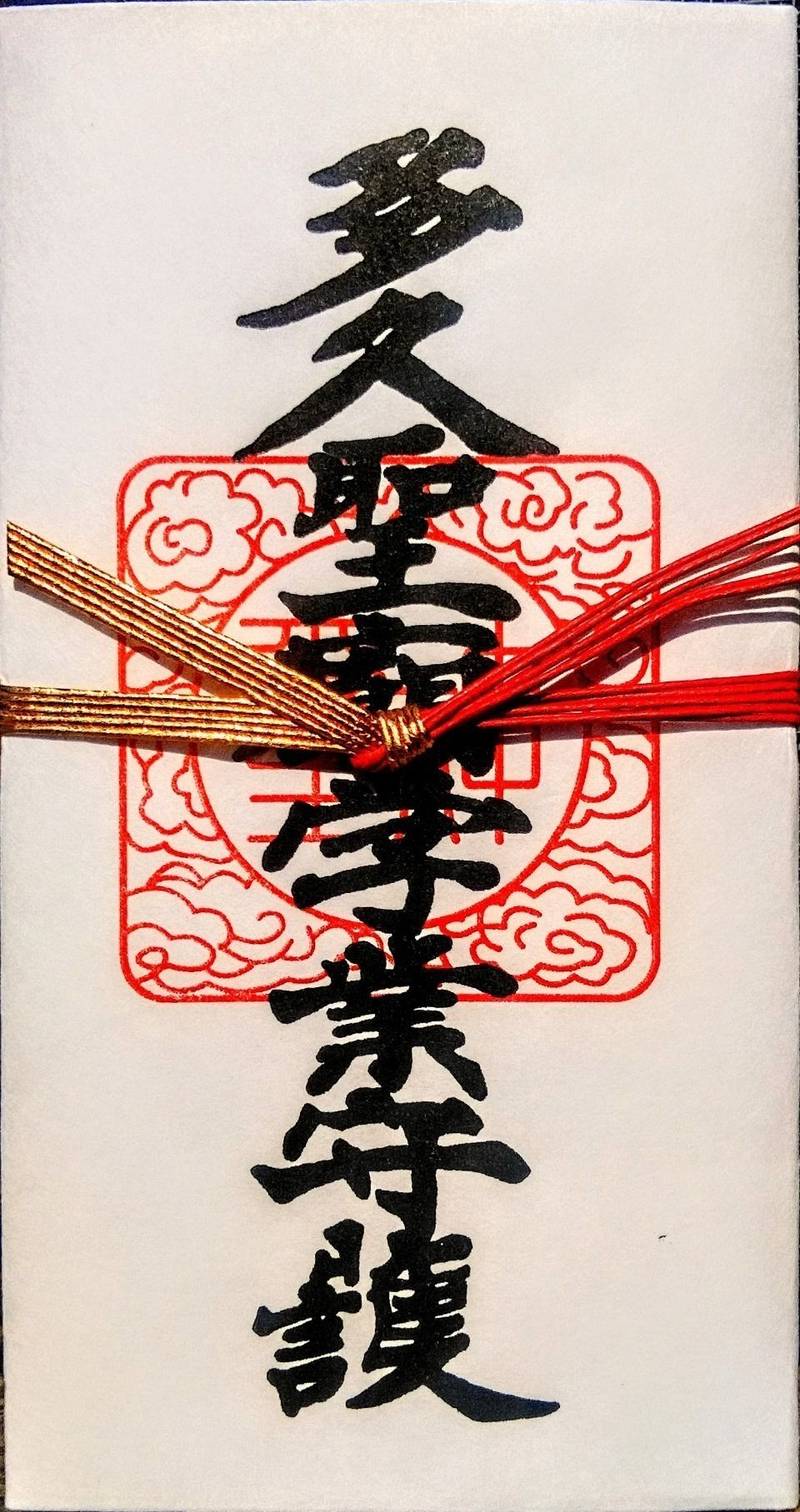 多久聖廟学業守護